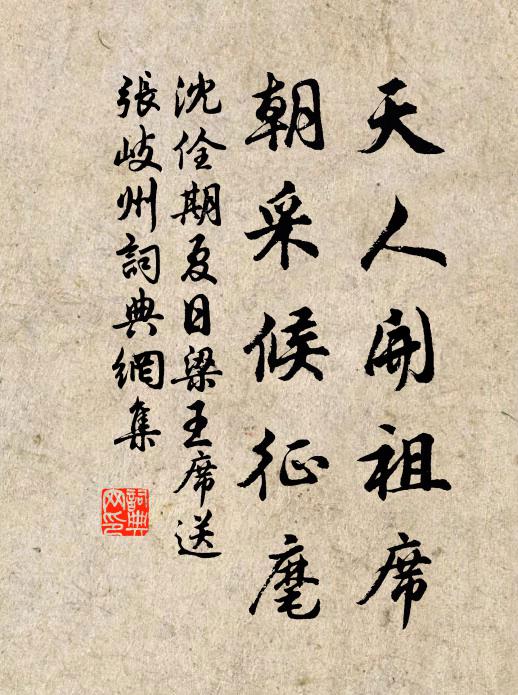 天人開祖席
朝采候征麾
沈佺期夏日梁王席送
張岐州詞典網集
詞典網印